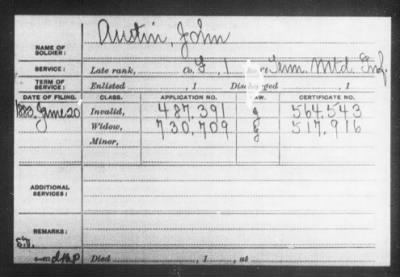 Austin, John
NAME OF SOLDIER:
SERVICE: Late rank, Co. G, 1 Tenn. Mtd. Inf.
TERM OF SERVICE: Enlisted , 1 Discharged , 1
DATE OF FILING. CLASS. APPLICATION NO. LAW. CERTIFICATE NO.
1883, June 20 Invalid, 487.391 564.543
Widow, 730.709 517.916
Minor,
ADDITIONAL SERVICES:
REMARKS:
Died , 1 , at